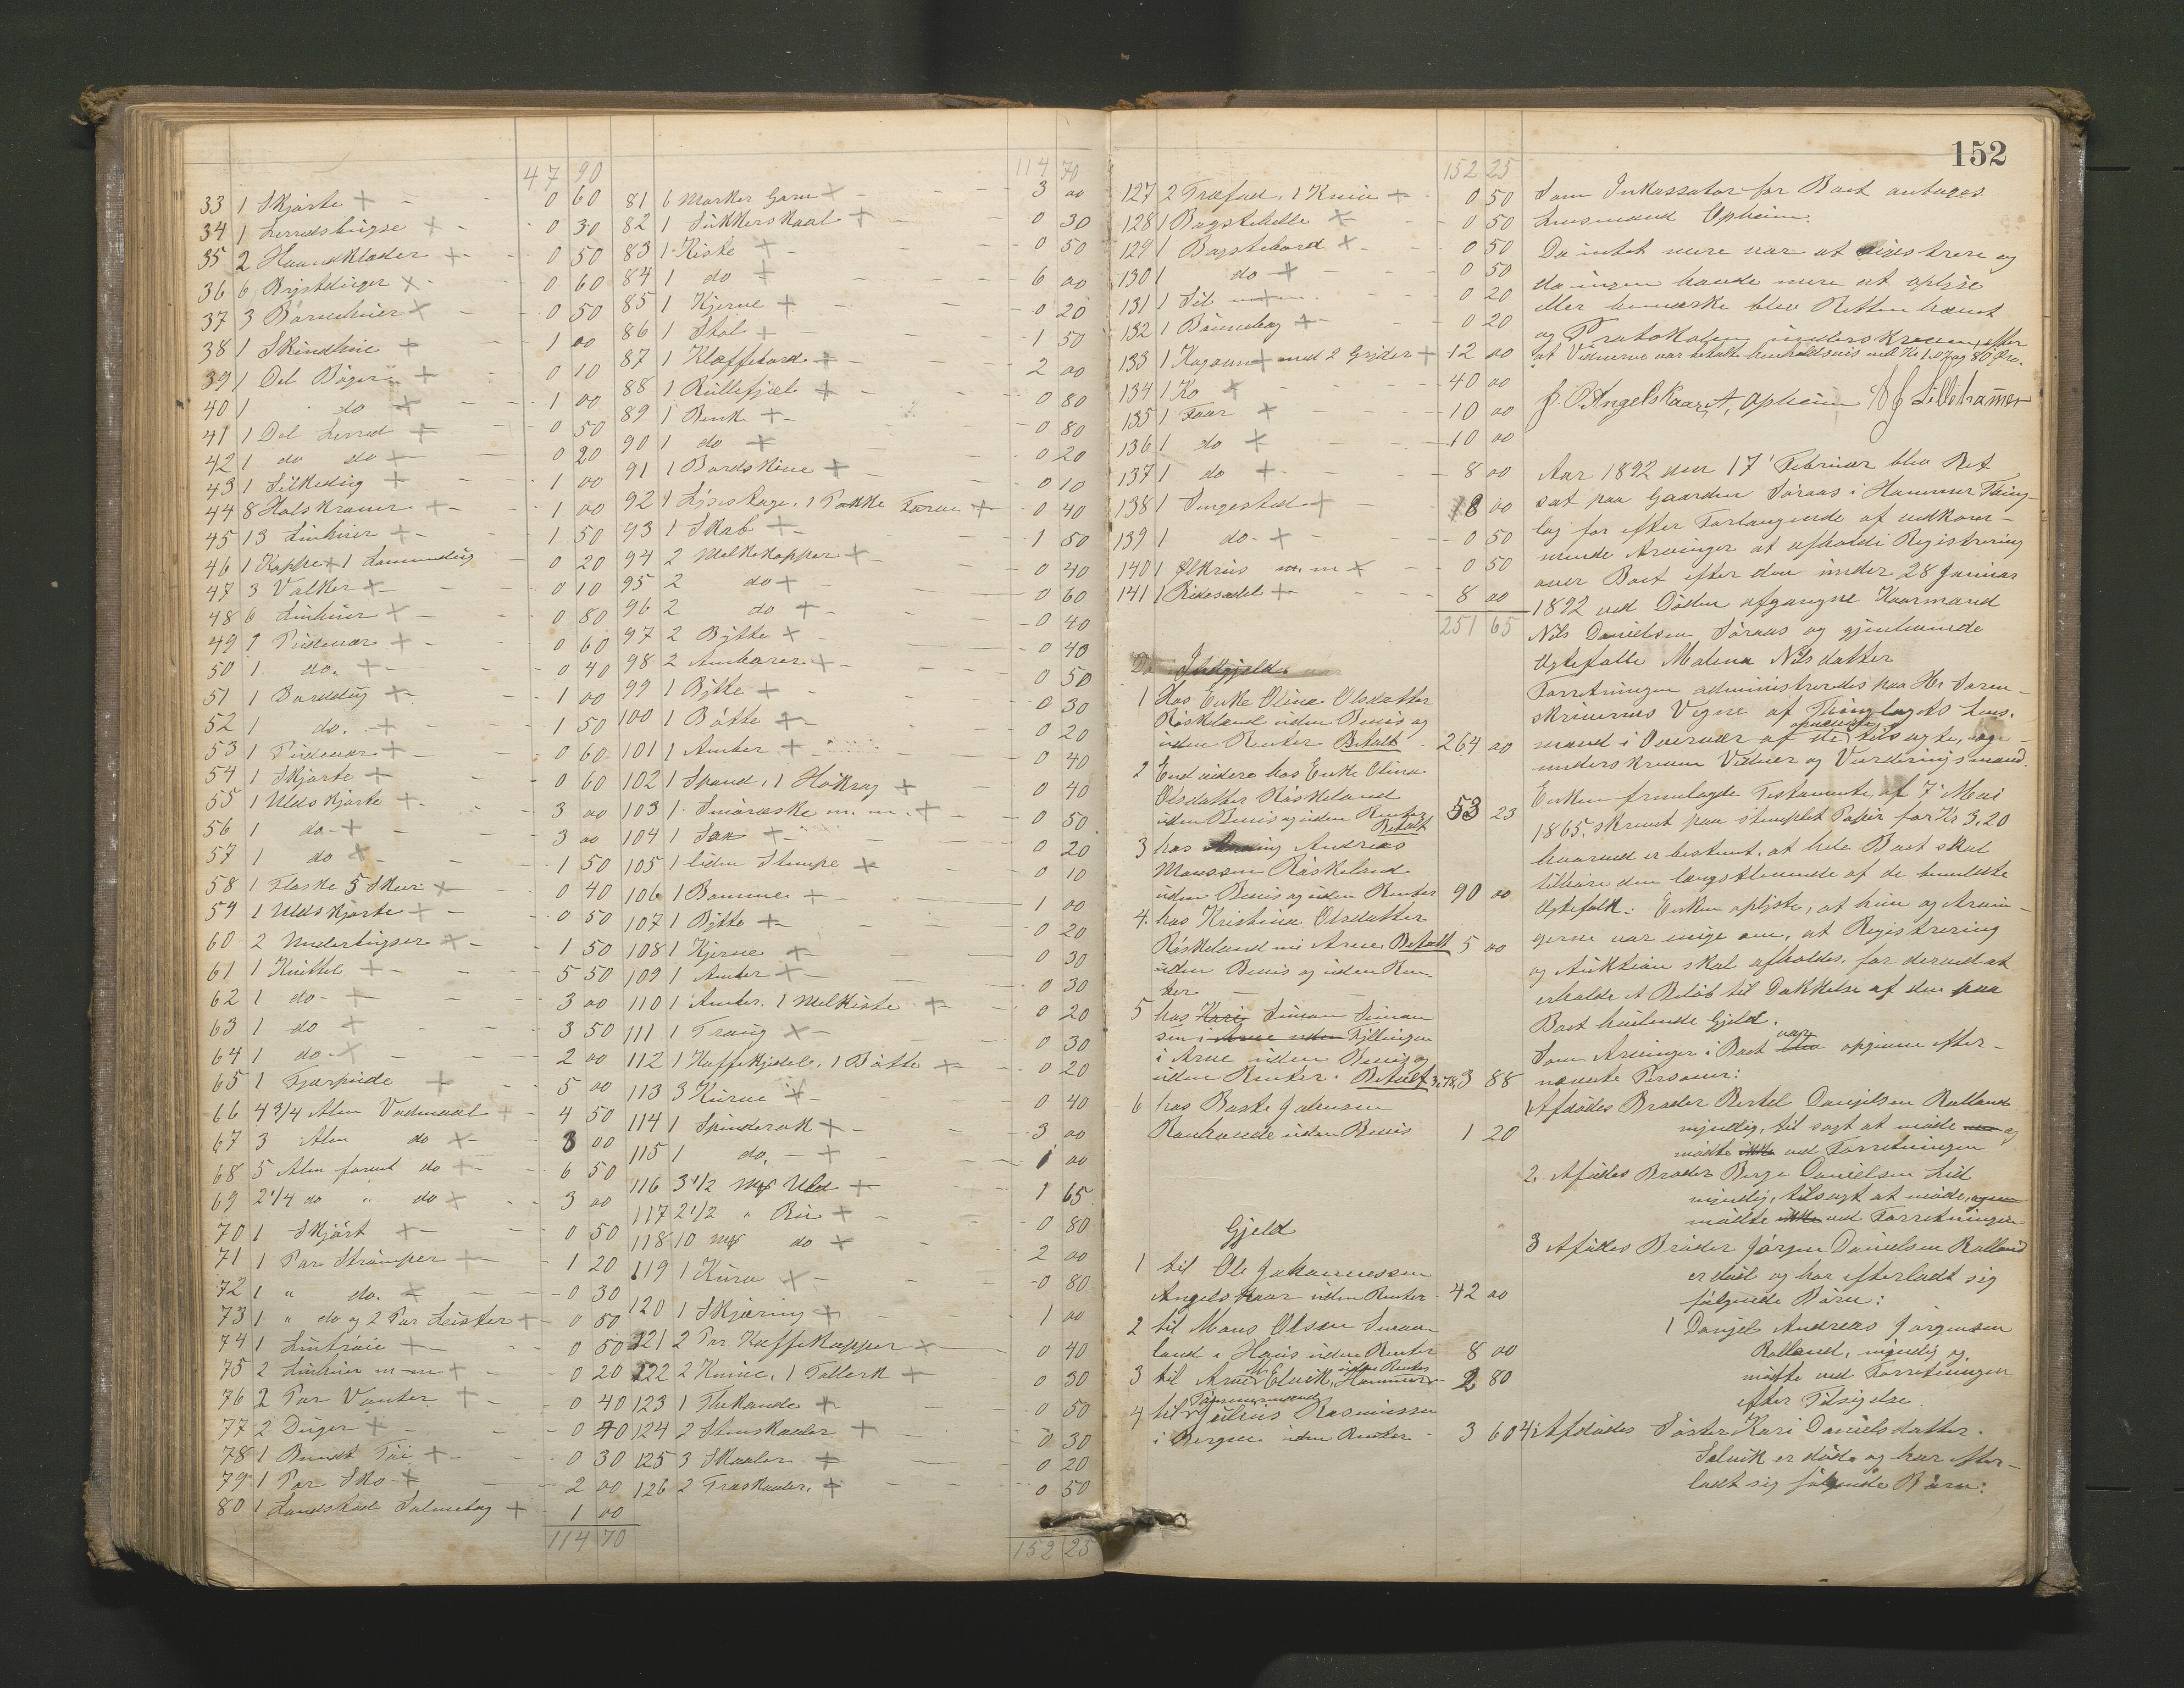 47 90
33 1 Skjorte + 0 60
34 1 Lerredsbugse + 0 30
35 2 Haandklæder + 0 50
36 6 Brystduger + 0 60
37 3 Børnehuer + 0 50
38 1 Skindhue + 1 00
39 1 Del Bøger + 0 10
40 1 do + 1 00
41 1 Del Lerred + 0 50
42 1 do do + 0 20
43 1 Silkedug + 1 00
44 8 Halskraver + 1 00
45 13 Linhuer + 1 50
46 1 Kappe + 1 Lommedug 0 20
47 3 Valker + 0 10
48 6 Linhuer + 0 80
49 1 Pudevar + 0 60
50 1 do. + 0 40
51 1 Borddug + 1 00
52 1 do. + 1 50
53 1 Pudevar + 0 60
54 1 Skjorte + 0 60
55 1 Uldskjorte + 3 00
56 1 do + 3 00
57 1 do + 1 50
58 1 Flaske 5 Skeer + 0 40
59 1 Uldskjorte + 0 50
60 2 Underbugser + 1 50
61 1 Knittel + 5 50
62 1 do + 3 00
63 1 do + 3 50
64 1 do + 2 00
65 1 Fjærpude + 5 00
66 4 3/4 Alen Vadmaal + 4 50
67 3 Alen do + 3 00
68 5 Alen farvet do + 6 50
69 2 1/4 do " do + 3 00
70 1 Skjørt + 0 50
71 1 Par Strømper + 1 20
72 1 " do. + 0 30
73 1 " do og 2 Par Leister + 0 50
74 1 Lintrøie + 0 50
75 2 Linhuer m-m + 0 20
76 2 Par Vanter + 0 40
77 2 Duger + 0 70
78 1 Bundt Tøi + 0 30
79 1 Par Sko + 2 00
80 1 Landstad Salmebog + 1 00
114 70
114 70
81 6 Marker Garn + 3 00
82 1 Sukkerskaal + 0 30
83 1 Kiste + 0 50
84 1 do + 6 00
85 1 Kjerne + 0 20
86 1 Stol + 1 50
87 1 Klaffebord + 2 00
88 1 Rullefjæl + 0 80
89 1 Benk + 0 80
90 1 do + 0 20
91 1 Bordskive + 0 10
92 1 Lysestage, 1 Pakke Farve + 0 40
93 1 Skab + 1 50
94 2 Melkekopper + 0 40
95 2 do + 0 60
96 2 do + 0 40
97 2 Bytte + 0 40
98 2 Ambarer + 0 50
99 1 Bytte + 0 30
100 1 Bøtte + 0 20
101 1 Amber + 0 40
102 1 Spand, 1 Høkrog + 0 40
103 1 Smøræske m. m. + 0 50
104 1 Sax + 0 20
105 1 liden Stampe + 0 10
106 1 Bomme + 1 00
107 1 Bytte + 0 20
108 1 Kjerne + 0 30
109 1 Amber + 0 30
110 1 Amber, 1 Melkiste + 0 20
111 1 Traug + 0 30
112 1 Kaffekjedel, 1 Bøtte + 0 20
113 3 Kurve + 0 40
114 1 Spinderok + 3 00
115 1 do. + 1 00
116 3 1/2 Mrk Uld + 1 65
117 2 1/2 " Ru + 0 80
118 10 mrk do + 2 00
119 1 Kurv + 0 80
120 1 Skjæring + 1 00
121 2 Par Kaffekopper + 0 40
122 2 Knive, 1 Tallerk + 0 30
123 1 Thekande + 0 50
124 2 Stenskaaler + 0 30
125 3 Skaaler + 0 20
126 2 Træskaaler. + 0 50
152 25
152 25
127 2 Træfad, 1 Kniv + 0 50
128 1 Bagstehelle + 0 50
129 1 Bagstebord + 0 50
130 1 do + 0 50
131 1 Sil m+m. 0 20
132 1 Bønnebog + 0 20
133 1 Kogovn + med 2 Gryder + 12 00
134 1 Ko + 40 00
135 1 Faar + 10 00
136 1 do + 10 00
137 1 do + 8 00
138 1 Sengested + 8 00
139 1 do + 0 50
140 1 Ølkrus m. m + 0 50
141 1 Ridesadel + 8 00
251 65
Indgjeld
1 Hos Enke Olina Olsdatter
Røskeland uden Bevis og
uden Renter Betalt 264 00
2 End videre hos Enke Olina
Olsdatter Røskeland
uden Bevis og uden Renter 53 23
Betalt
3 hos Andreas
Monssen Røskeland
uden Bevis og uden Renter 90 00
4. hos Kristina Olsdatter
Røskeland nu Arne Betalt 5 00
uden Bevis og uden Ren-
ter
5 hos Kari Simon Simon
sen i Arne uden Fyllingen
i Arne uden Bevis og
uden Renter. Betalt 3,78, 3 88
6 hos Baste Johnsen
Rauhaude uden Bevis 1 20
Gjeld
1 til Ole Johannessen
Angelskaar uden Renter 42 00
2 til Mons Olsen Smaa-
land i Haus uden Renter 8 00
uden Renter
3 til Arne M. Elvik, Hammer 2 80
Tømmermand
4 til Julius Rasmussen
i Bergen uden Renter 3 60
152
Som Inkassator for Boet antoges
Lensmand Opheim.
Da intet mere var at registrere og
da ingen havde mere at oplyse
eller bemærke blev Retten hævet
og Protokollen underskreven efter
at Vidnerne var betalte henholdsvis med Kr 1.07 og 80 Øre.
J. O Angelskaar A, Opheim A J Lillehammer
Aar 1892 den 17' Februar blev Ret
sat paa Gaarden Søraas i Hammer Thing-
lag for efter Forlangende af vedkom-
mende Arvinger at afholde Registrering
over Boet efter den under 28 Januar
1892 ved Døden afgangne Kaarmand
Nils Danielsen Søraas og gjenlevende
Ægtefælle Malena Nilsdatter
Forretningen administreredes paa Hr Soren-
skriverens Vegne af Thinglagets Lens-
opnævnte
mand i Overvær af de tilsagte, og
underskrevne Vidner og Vurderingsmænd.
Enken fremlagde Testamente af 7' Mai
1865. skrevet paa stemplet Papir for Kr 3,20
hvorved er bestemt, at hele Boet skal
tilhøre den længstlevende af de humeldte
Ægtefolk: Enken oplyste, at hun og Arvin-
gerne var enige om, at Registrering
og Auktion skal afholdes, for derved at
erholde et Beløb til Dækkelse af den paa
Boet hvilende Gjeld.
var
Som Arvinger i Boet blev opgivne efter-
nævnte Personer:
1 Afdødes Broder Bertel Danjelsen Rolland
myndig, til sagt at møde og
mødte ikke ved Forretningen
2. Afdødes Broder Berge Danielsen Lid
myndig, tilsagt at møde, ogsaa
mødte ikke ved Forretningen
3 Afdødes Broder Jørgen Danielsen Rolland
er død og har efterladt sig
følgende Børn:
1 Danjel Andreas Jørgensen
Rolland, myndig og
mødte ved Forretningen
efter Tilsigelse
4: Afdødes Søster Kari Danielsdatter
Selvik er død og har efter-
ladt sig følgende Børn: